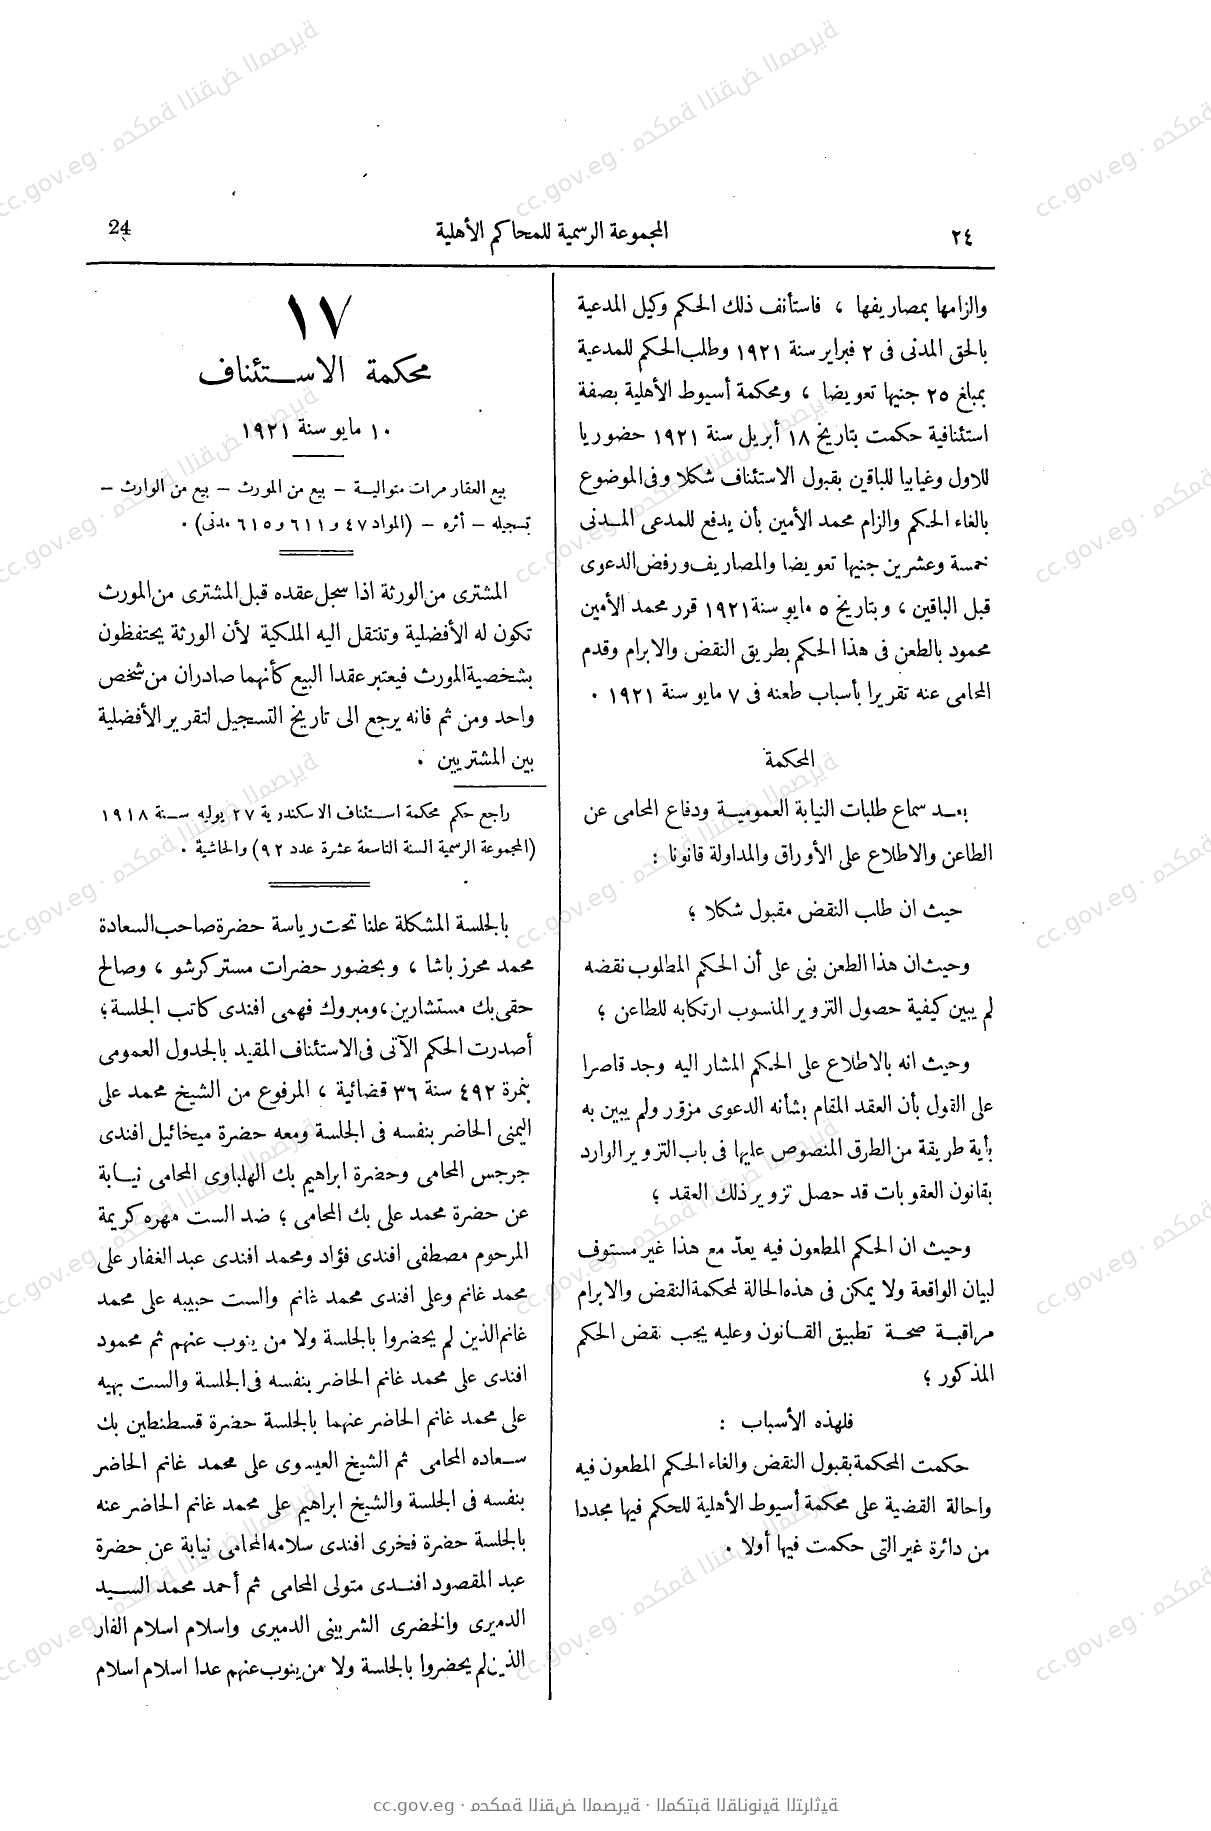 ٢٤
المجموعة الرسمية للمحاكم الأهلية
24
والزامها بمصاريفها ، فاستأنف ذلك الحكم وكيل المدعية
بالحق المدنى فى ٢ فبراير سنة ١٩٢١ وطلب الحكم للمدعية
بمبلغ ٢٥ جنيها تعويضا ، ومحكمة أسيوط الأهلية بصفة
استئنافية حكمت بتاريخ ١٨ أبريل سنة ١٩٢١ حضوريا
للاول وغيابيا للباقين بقبول الاستئناف شكلا وفى الموضوع
بالغاء الحكم والزام محمد الأمين بأن يدفع للمدعى المدنى
خمسة وعشرين جنيها تعويضا والمصاريف ورفض الدعوى
قبل الباقين ، وبتاريخ ٥ مايو سنة ١٩٢١ قرر محمد الأمين
محمود بالطعن فى هذا الحكم بطريق النقض والابرام وقدم
المحامى عنه تقريرا بأسباب طعنه فى ٧ مايو سنة ١٩٢١ .
المحكمة
بعد سماع طلبات النيابة العمومية ودفاع المحامى عن
الطاعن والاطلاع على الأوراق والمداولة قانونا :
حيث ان طلب النقض مقبول شكلا ؛
وحيث ان هذا الطعن بنى على أن الحكم المطلوب نقضه
لم يبين كيفية حصول التزوير المنسوب ارتكابه للطاعن ؛
وحيث انه بالاطلاع على الحكم المشار اليه وجد قاصرا
على القول بأن العقد المقام بشأنه الدعوى مزوّر ولم يبين به
بأية طريقة من الطرق المنصوص عليها فى باب التزوير الوارد
بقانون العقوبات قد حصل تزوير ذلك العقد ؛
وحيث ان الحكم المطعون فيه يعدّ مع هذا غير مستوف
لبيان الواقعة ولا يمكن فى هذه الحالة لمحكمة النقض والابرام
مراقبة صحة تطبيق القانون وعليه يجب نقض الحكم
المذكور ؛
فلهذه الأسباب :
حكمت المحكمة بقبول النقض والغاء الحكم المطعون فيه
واحالة القضية على محكمة أسيوط الأهلية للحكم فيها مجددا
من دائرة غير التى حكمت فيها أولا .
١٧
محكمة الاستئناف
١٠ مايو سنة ١٩٢١
بيع العقار مرات متوالية – بيع من المورث – بيع من الوارث –
تسجيله – أثره – (المواد ٤٧ و ٦١١ و ٦١٥ مدنى) .
المشترى من الورثة اذا سجل عقده قبل المشترى من المورث
تكون له الأفضلية وتنتقل اليه الملكية لأن الورثة يحتفظون
بشخصية المورث فيعتبر عقدا البيع كأنهما صادران من شخص
واحد ومن ثم فانه يرجع الى تاريخ التسجيل لتقرير الأفضلية
بين المشتريين .
راجع حكم محكمة استئناف الاسكندرية ٢٧ يوليه سنة ١٩١٨
(المجموعة الرسمية السنة التاسعة عشرة عدد ٩٢) والحاشية .
بالجلسة المشكلة علنا تحت رياسة حضرة صاحب السعادة
محمد محرز باشا ، وبحضور حضرات مستر كرشو ، وصالح
حقى بك مستشارين ، ومبروك فهمى افندى كاتب الجلسة ؛
أصدرت الحكم الآتى فى الاستئناف المقيد بالجدول العمومى
بنمرة ٤٩٢ سنة ٣٦ قضائية ، المرفوع من الشيخ محمد على
اليمنى الحاضر بنفسه فى الجلسة ومعه حضرة ميخائيل افندى
جرجس المحامى وحضرة ابراهيم بك الهلباوى المحامى نيابة
عن حضرة محمد على بك المحامى ؛ ضد الست مهره كريمة
المرحوم مصطفى افندى فؤاد ومحمد افندى عبد الغفار على
محمد غانم وعلى افندى محمد غانم والست حبيبه على محمد
غانم الذين لم يحضروا بالجلسة ولا من ينوب عنهم ثم محمود
افندى على محمد غانم الحاضر بنفسه فى الجلسة والست بهيه
على محمد غانم الحاضر عنهما بالجلسة حضرة قسطنطين بك
سعاده المحامى ثم الشيخ العيسوى على محمد غانم الحاضر
بنفسه فى الجلسة والشيخ ابراهيم على محمد غانم الحاضر عنه
بالجلسة حضرة فخرى افندى سلامه المحامى نيابة عن حضرة
عبد المقصود افندى متولى المحامى ثم أحمد محمد السيد
الدميرى والخضرى الشربينى الدميرى واسلام اسلام الفار
الذين لم يحضروا بالجلسة ولا من ينوب عنهم عدا اسلام اسلام
cc.gov.eg · محكمة النقض المصرية · المكتبة القانونية التراثية